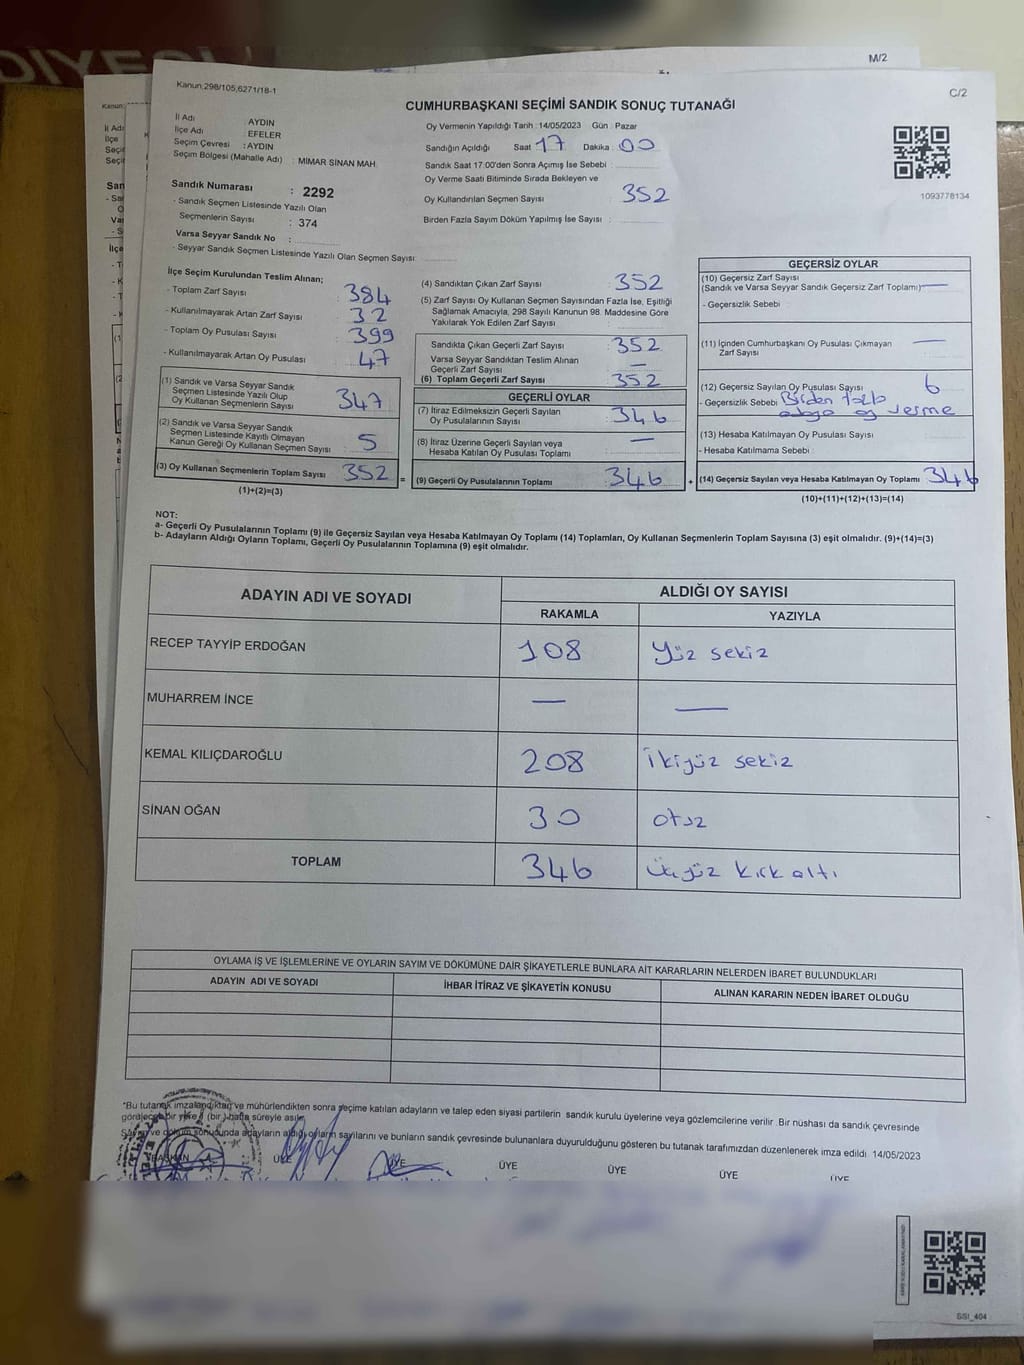 DİYESİ
M/2
Kanun;298/105,6271/18-1
C/2
CUMHURBAŞKANI SEÇİMİ SANDIK SONUÇ TUTANAĞI
İl Adı : AYDIN
İlçe Adı : EFELER
Seçim Çevresi : AYDIN
Seçim Bölgesi (Mahalle Adı) : MİMAR SİNAN MAH.
Oy Vermenin Yapıldığı Tarih :14/05/2023 Gün : Pazar
Sandığın Açıldığı Saat 17 Dakika : 00
Sandık Saat 17:00'den Sonra Açımış İse Sebebi :
Oy Verme Saati Bitiminde Sırada Bekleyen ve
Oy Kullandırılan Seçmen Sayısı : 352
Birden Fazla Sayım Döküm Yapılmış İse Sayısı :
1093778134
Sandık Numarası : 2292
- Sandık Seçmen Listesinde Yazılı Olan
Seçmenlerin Sayısı : 374
Varsa Seyyar Sandık No :
- Seyyar Sandık Seçmen Listesinde Yazılı Olan Seçmen Sayısı:
İlçe Seçim Kurulundan Teslim Alınan;
- Toplam Zarf Sayısı : 384
- Kullanılmayarak Artan Zarf Sayısı : 32
- Toplam Oy Pusulası Sayısı : 399
- Kullanılmayarak Artan Oy Pusulası : 47
(1) Sandık ve Varsa Seyyar Sandık
Seçmen Listesinde Yazılı Olup
Oy Kullanan Seçmenlerin Sayısı : 347
(2) Sandık ve Varsa Seyyar Sandık
Seçmen Listesinde Kayıtlı Olmayan
Kanun Gereği Oy Kullanan Seçmen Sayısı : 5
(3) Oy Kullanan Seçmenlerin Toplam Sayısı : 352
(1)+(2)=(3)
(4) Sandıktan Çıkan Zarf Sayısı : 352
(5) Zarf Sayısı Oy Kullanan Seçmen Sayısından Fazla İse, Eşitliği
Sağlamak Amacıyla, 298 Sayılı Kanunun 98. Maddesine Göre
Yakılarak Yok Edilen Zarf Sayısı :
Sandıkta Çıkan Geçerli Zarf Sayısı : 352
Varsa Seyyar Sandıktan Teslim Alınan
Geçerli Zarf Sayısı : —
(6) Toplam Geçerli Zarf Sayısı : 352
GEÇERLİ OYLAR
(7) İtiraz Edilmeksizin Geçerli Sayılan
Oy Pusulalarının Sayısı : 346
(8) İtiraz Üzerine Geçerli Sayılan veya
Hesaba Katılan Oy Pusulası Toplamı : —
= (9) Geçerli Oy Pusulalarının Toplamı : 346
GEÇERSİZ OYLAR
(10) Geçersiz Zarf Sayısı
(Sandık ve Varsa Seyyar Sandık Geçersiz Zarf Toplamı) —
- Geçersizlik Sebebi :
(11) İçinden Cumhurbaşkanı Oy Pusulası Çıkmayan
Zarf Sayısı : —
(12) Geçersiz Sayılan Oy Pusulası Sayısı : 6
- Geçersizlik Sebebi Birden fazla
adaya oy verme
(13) Hesaba Katılmayan Oy Pusulası Sayısı :
- Hesaba Katılmama Sebebi :
+ (14) Geçersiz Sayılan veya Hesaba Katılmayan Oy Toplamı : 346
(10)+(11)+(12)+(13)=(14)
NOT:
a- Geçerli Oy Pusulalarının Toplamı (9) ile Geçersiz Sayılan veya Hesaba Katılmayan Oy Toplamı (14) Toplamları, Oy Kullanan Seçmenlerin Toplam Sayısına (3) eşit olmalıdır. (9)+(14)=(3)
b- Adayların Aldığı Oyların Toplamı, Geçerli Oy Pusulalarının Toplamına (9) eşit olmalıdır.
ADAYIN ADI VE SOYADI ALDIĞI OY SAYISI
RAKAMLA YAZIYLA
RECEP TAYYİP ERDOĞAN 108 Yüz sekiz
MUHARREM İNCE — —
KEMAL KILIÇDAROĞLU 208 İkiyüz sekiz
SİNAN OĞAN 30 otuz
TOPLAM 346 Üçyüz kırk altı
OYLAMA İŞ VE İŞLEMLERİNE VE OYLARIN SAYIM VE DÖKÜMÜNE DAİR ŞİKAYETLERLE BUNLARA AİT KARARLARIN NELERDEN İBARET BULUNDUKLARI
ADAYIN ADI VE SOYADI İHBAR İTİRAZ VE ŞİKAYETİN KONUSU ALINAN KARARIN NEDEN İBARET OLDUĞU
*Bu tutanak imzalandıktan ve mühürlendikten sonra seçime katılan adayların ve talep eden siyasi partilerin sandık kurulu üyelerine veya gözlemcilerine verilir .Bir nüshası da sandık çevresinde
görülecek bir yere 1 (bir ) hafta süreyle asılır.
Sayım ve döküm sonucunda adayların aldığı oyların sayılarını ve bunların sandık çevresinde bulunanlara duyurulduğunu gösteren bu tutanak tarafımızdan düzenlenerek imza edildi. 14/05/2023
BAŞKAN ÜYE ÜYE ÜYE ÜYE ÜYE ÜYE
SSI_404